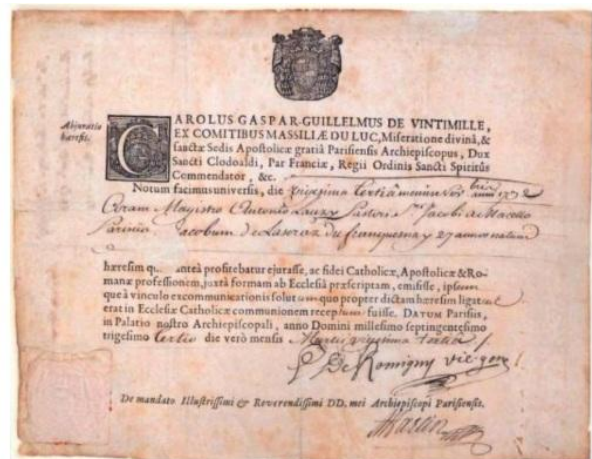 Abjuratio
hæresis.
CAROLUS GASPAR-GUILLELMUS DE VINTIMILLE,
EX COMITIBUS MASSILIÆ DU LUC, Miseratione divinâ, &
sanctæ Sedis Apostolicæ gratiâ Parisiensis Archiepiscopus, Dux
Sancti Clodoaldi, Par Franciæ, Regii Ordinis Sancti Spiritûs
Commendator, &c.
Notum facimus universis, die vigesima tertiâ mensis anno
Coram Magistro Antonio Pastore Sti Jacobi de Macello
Parisiis Jacobum de 27 annos natum
hæresim qu anteà profitebatur ejurasse, ac fidei Catholicæ, Apostolicæ & Ro-
manæ professionem, juxtà formam ab Ecclesiâ præscriptam, emisisse, ipsum
que à vinculo excommunicationis solutum quo propter dictam hæresim ligat
erat in Ecclesiæ Catholicæ communionem receptum fuisse. DATUM Parisiis,
in Palatio nostro Archiepiscopali, anno Domini millesimo septingentesimo
trigesimo tertio die verò mensis Martii vigesima tertia
De Romigny vic. gen.
De mandato Illustrissimi & Reverendissimi DD. mei Archiepiscopi Parisiensis.